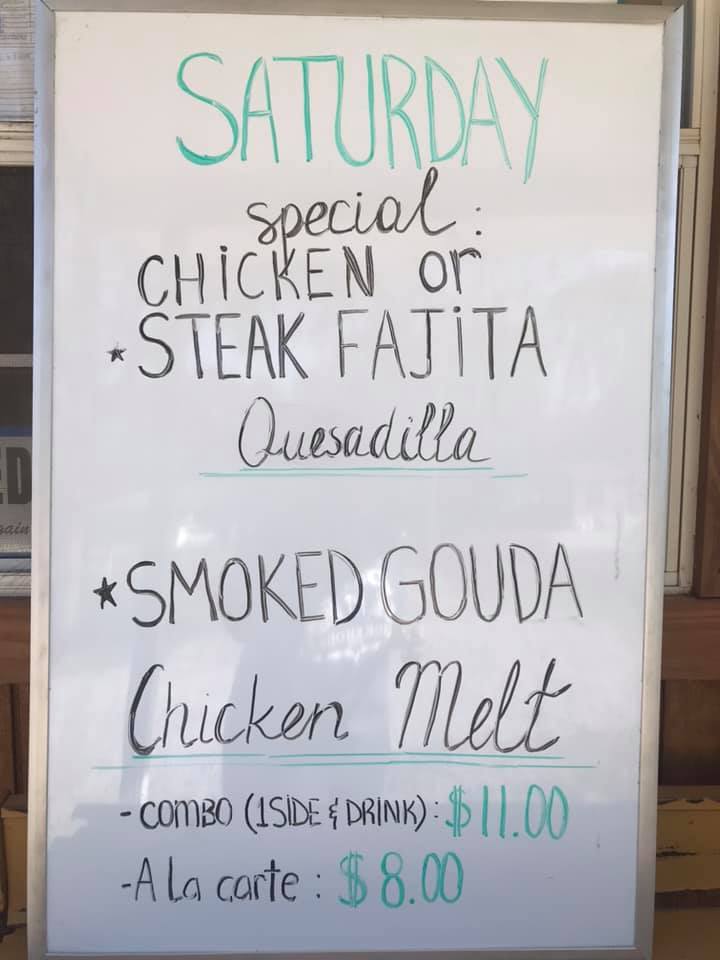 SATURDAY
special :
CHiCKEN or
★ STEAK FAJiTA
Quesadilla
★ SMOKED GOUDA
Chicken Melt
- COMBO (1 SiDE & DRiNK) : $11.00
- A La carte : $8.00
ED
gain